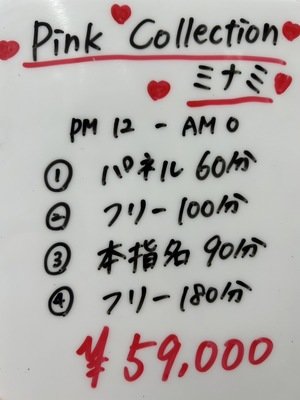 Pink Collection
ミナミ
PM 12 - AM 0
① パネル 60分
② フリー 100分
③ 本指名 90分
④ フリー 180分
¥59,000